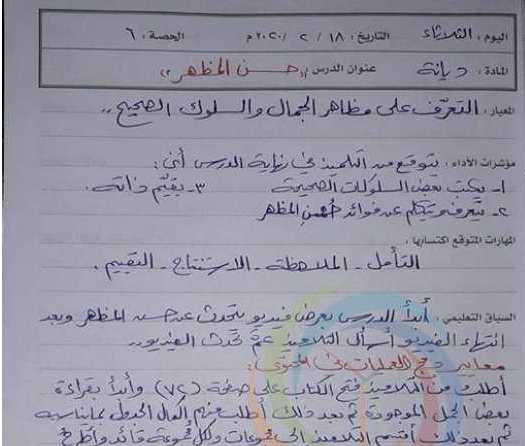 اليوم : الثلاثاء التاريخ : ١٨ / ٢ / ٢٠٢٠ م الحصة : ٦
المادة : ديانة عنوان الدرس : (( حسن المظهر ))
المعيار : التعرف على مظاهر الجمال والسلوك الصحيح ..
مؤشرات الأداء : يتوقع من التلميذ في نهاية الدرس أن :
١- يكتب بعض السلوكيات الصحيحة ٣- يقيّم ذاته .
٢- يتكلم عن فوائد حُسن المظهر
المهارات المتوقع اكتسابها :
التأمل - الملاحظة - الاستنتاج - التقييم .
السياق التعليمي : أبدأ الدرس بعرض فيديو يتحدث عن حسن المظهر وبعد
انتهاء الفيديو أسأل التلاميذ عمّ تحدث الفيديو ..
معايير دمج العمليات في المحتوى :
أطلب من التلاميذ فتح الكتاب على صفحة (٧٢) وأبدأ بقراءة
بعض الجمل الموجودة ثم بعد ذلك أطلب منهم بما يناسبه
ثم بعد ذلك أقسم التلاميذ إلى مجموعات ولكل مجموعة قائد وأطرح